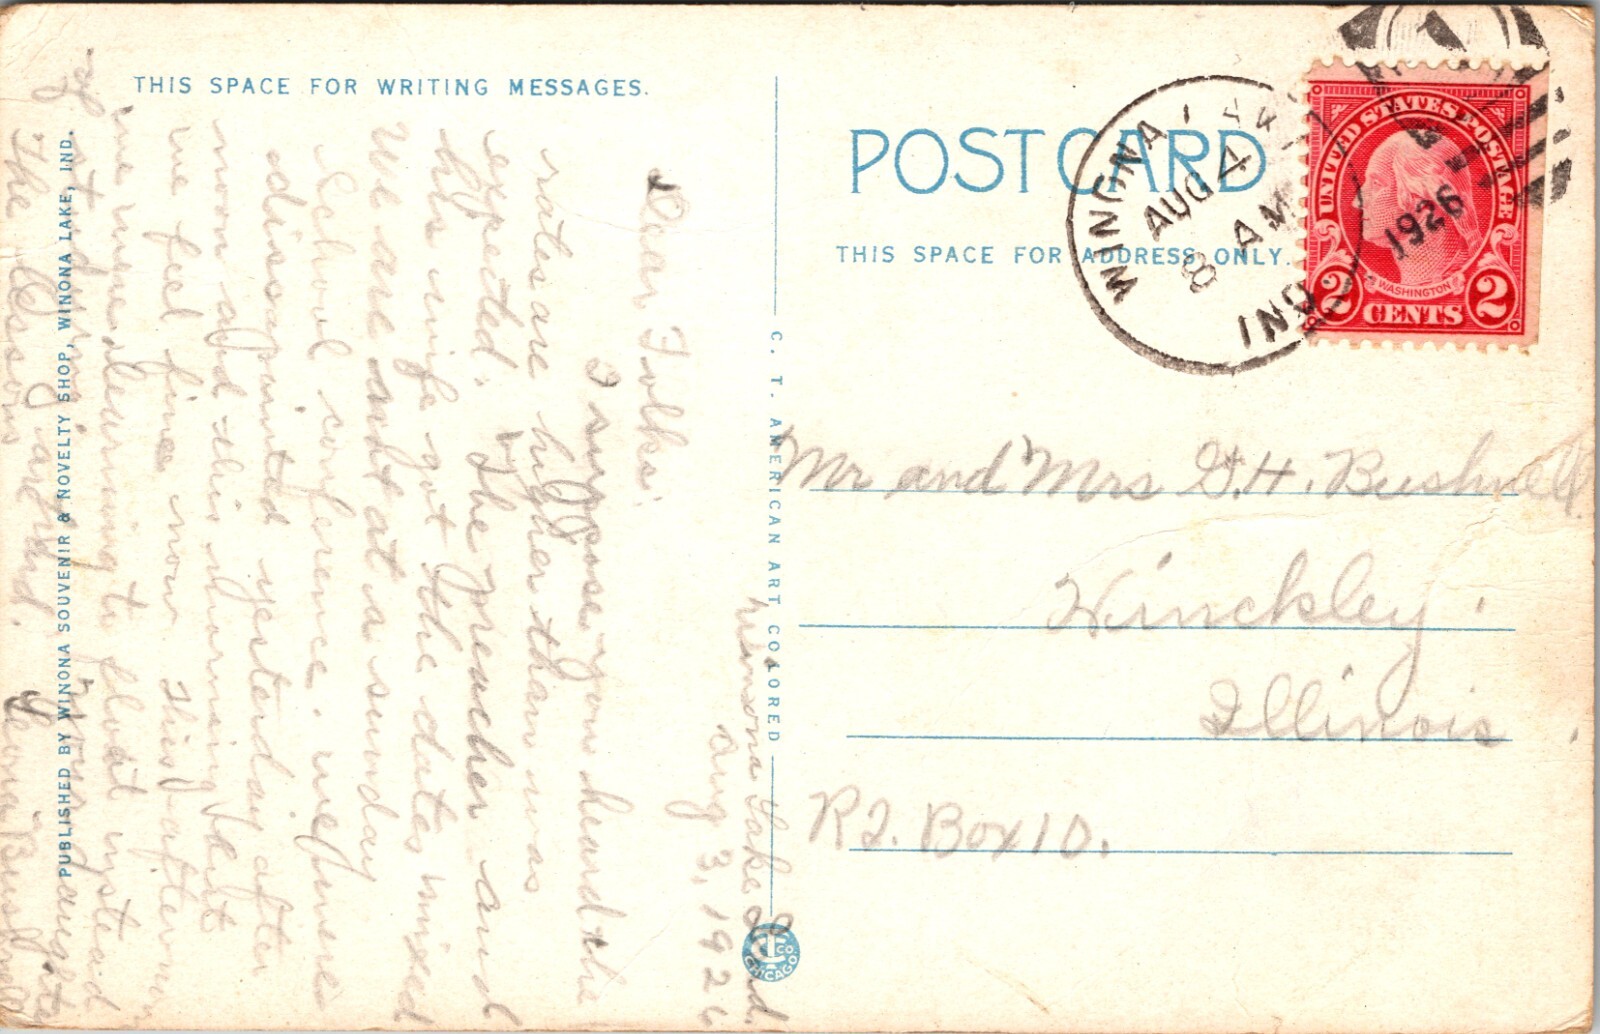 THIS SPACE FOR WRITING MESSAGES.
POST CARD
THIS SPACE FOR ADDRESS ONLY.
WINONA LAKE
AUG 4
8 AM
1926
IND.
UNITED STATES POSTAGE
WASHINGTON
2 CENTS 2
Mr and Mrs G.H. Bushnell
Hinckley
Illinois
R2. Box 10.
C. T. AMERICAN ART COLORED
C.T. CO. CHICAGO
PUBLISHED BY WINONA SOUVENIR & NOVELTY SHOP, WINONA LAKE, IND.
Winona Lake Ind.
Aug 3, 1926
Dear Folks:
I suppose you heard the
rates are higher than was
expected. The preacher and
his wife got the dates mixed
We are not at a Sunday
School conference. We were
disappointed yesterday after
noon and this morning but
we feel fine now. This afternoon
we were learning to float instead
of
the
Bushnell